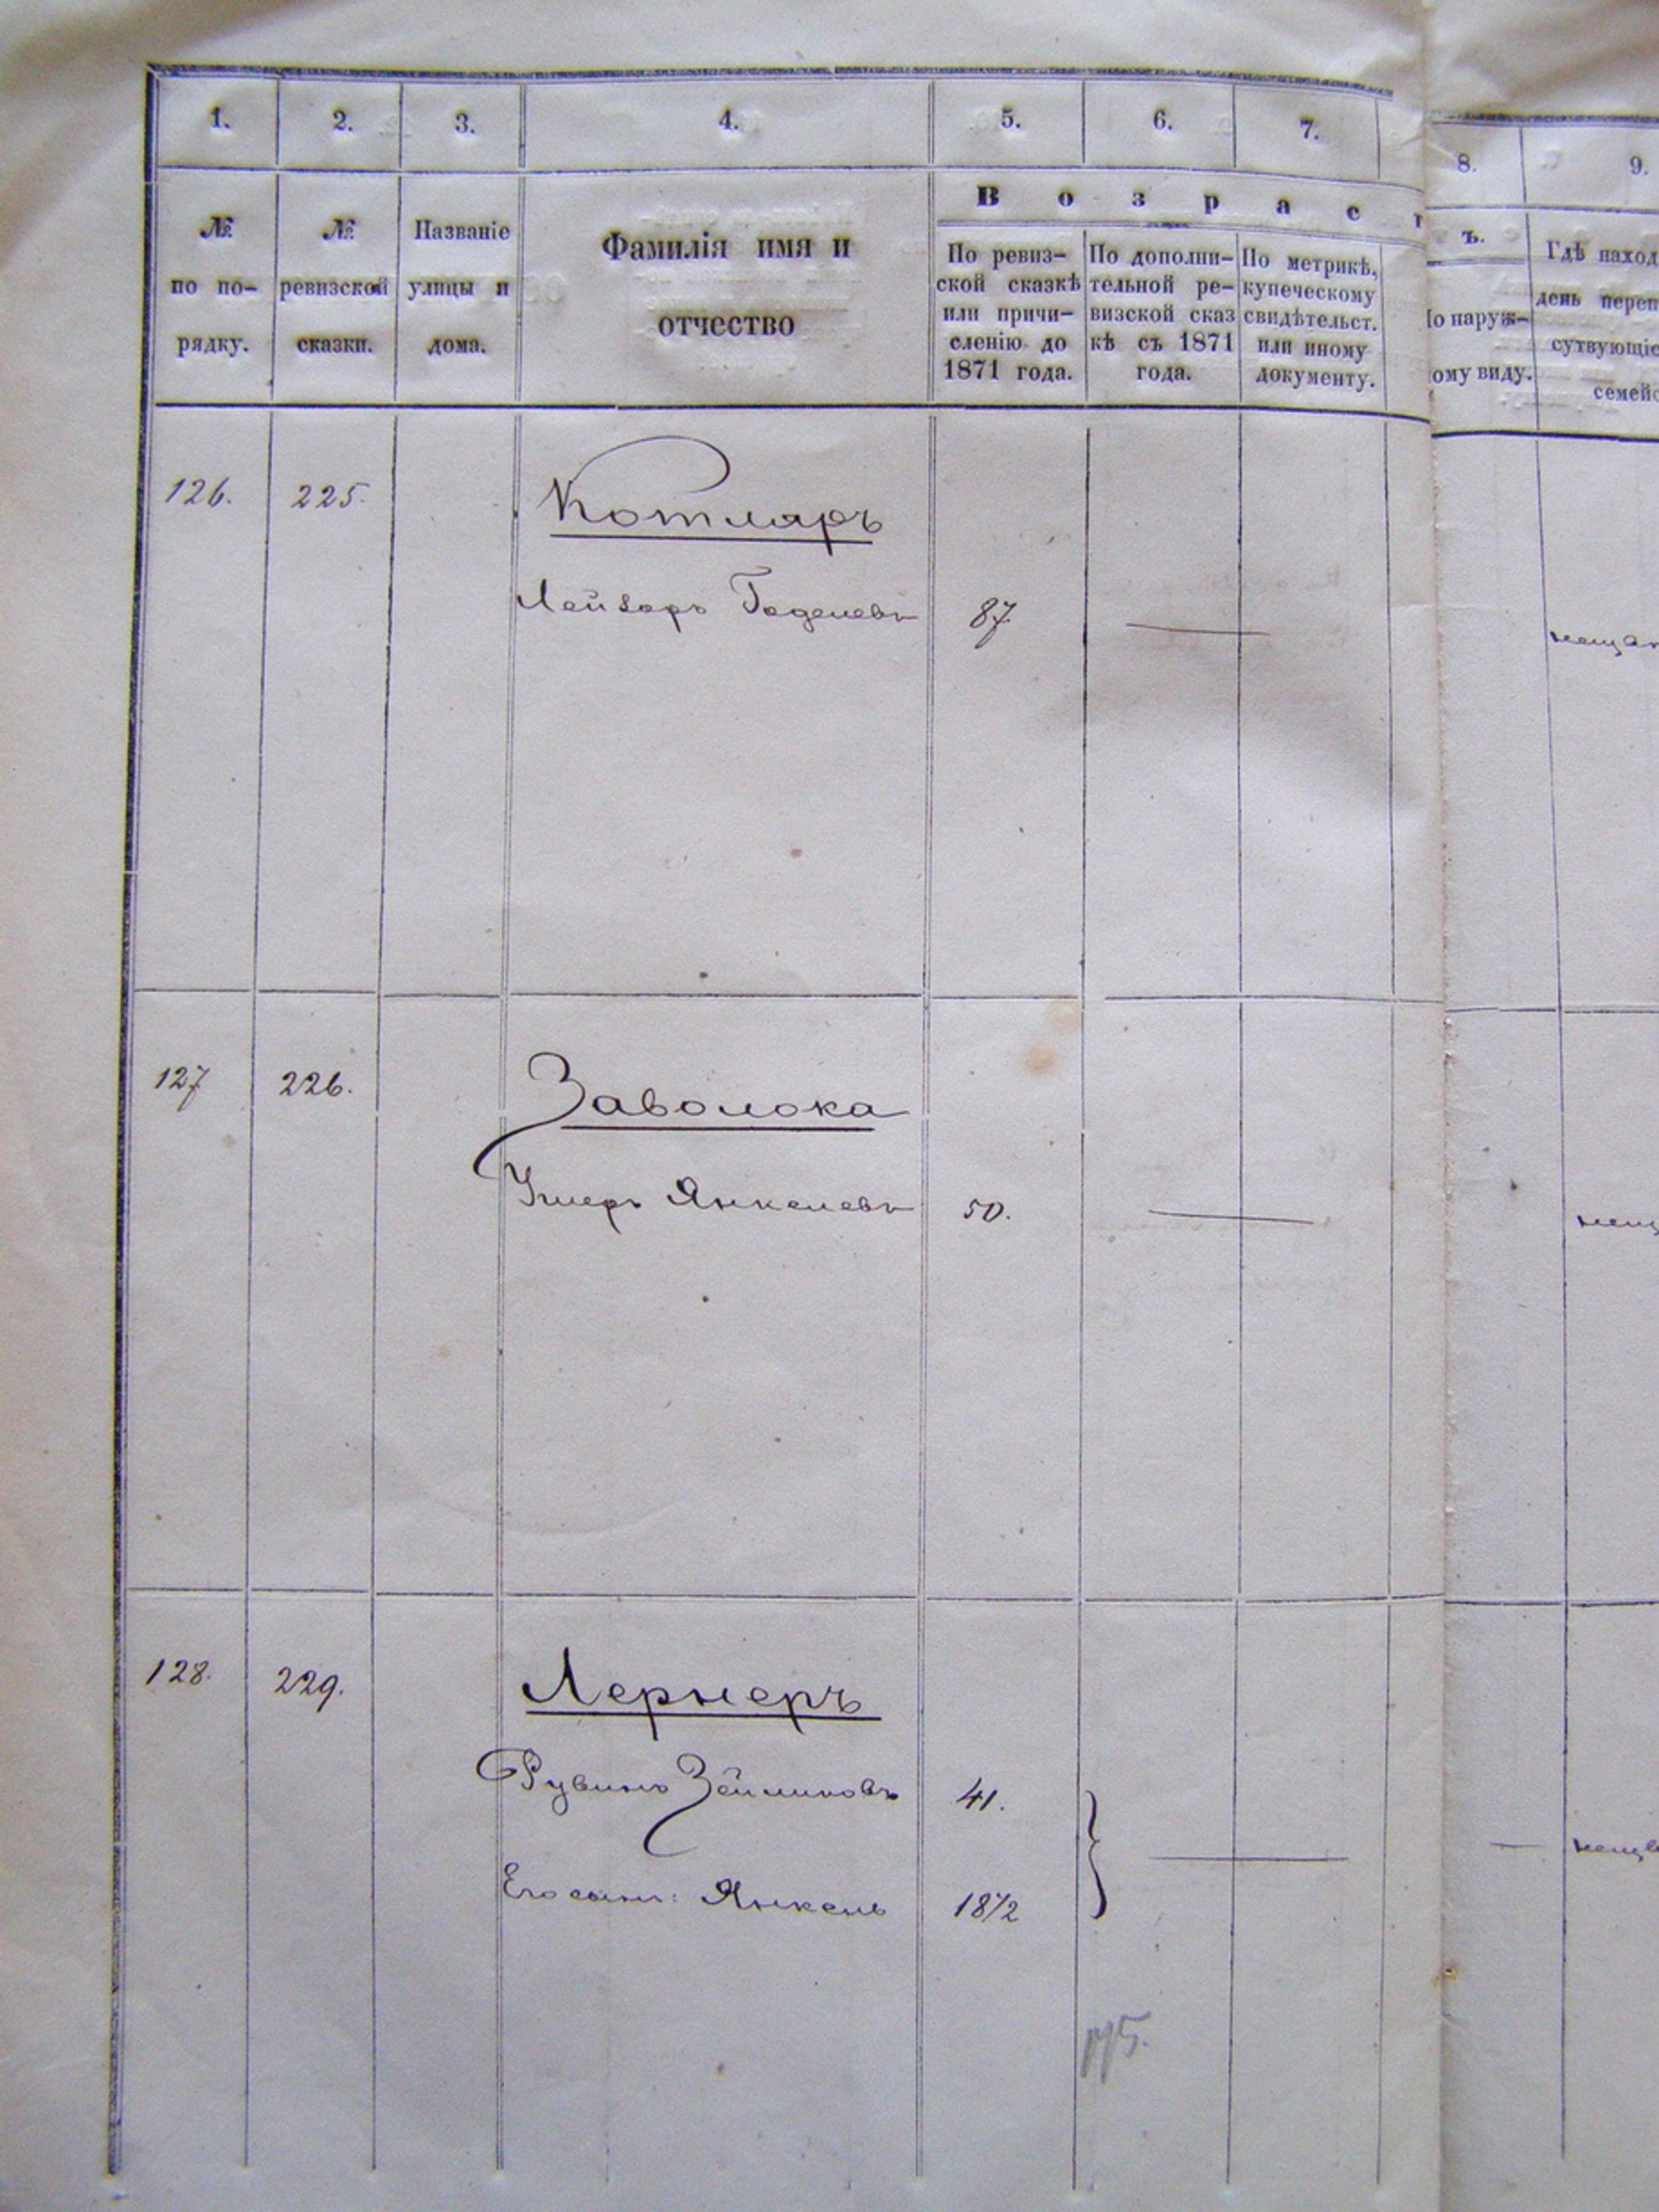 1. 2. 3. 4. 5. 6. 7. 8. 9.
№ по по- рядку.
№ ревизской сказки.
Названіе улицы и дома.
Фамилія имя и отчество
В о з р а с т
ъ.
По ревиз-
ской сказкѣ
или причи-
сленію до
1871 года.
По дополни-
тельной ре-
визской сказ
кѣ съ 1871
года.
По метрикѣ,
купеческому
свидѣтельст.
или иному
документу.
о наруж-
ому виду.
Гдѣ наход
день переп
сутвующіе
семейс
126. 225. Котляръ
Лейзоръ Годелевъ 87 мещан
127 226. Заволока
Ушеръ Янкелевъ 50. мещ
128. 229. Лернеръ
Рувинъ Зейликовъ 41.
Его сынъ: Янкель 18½ меща